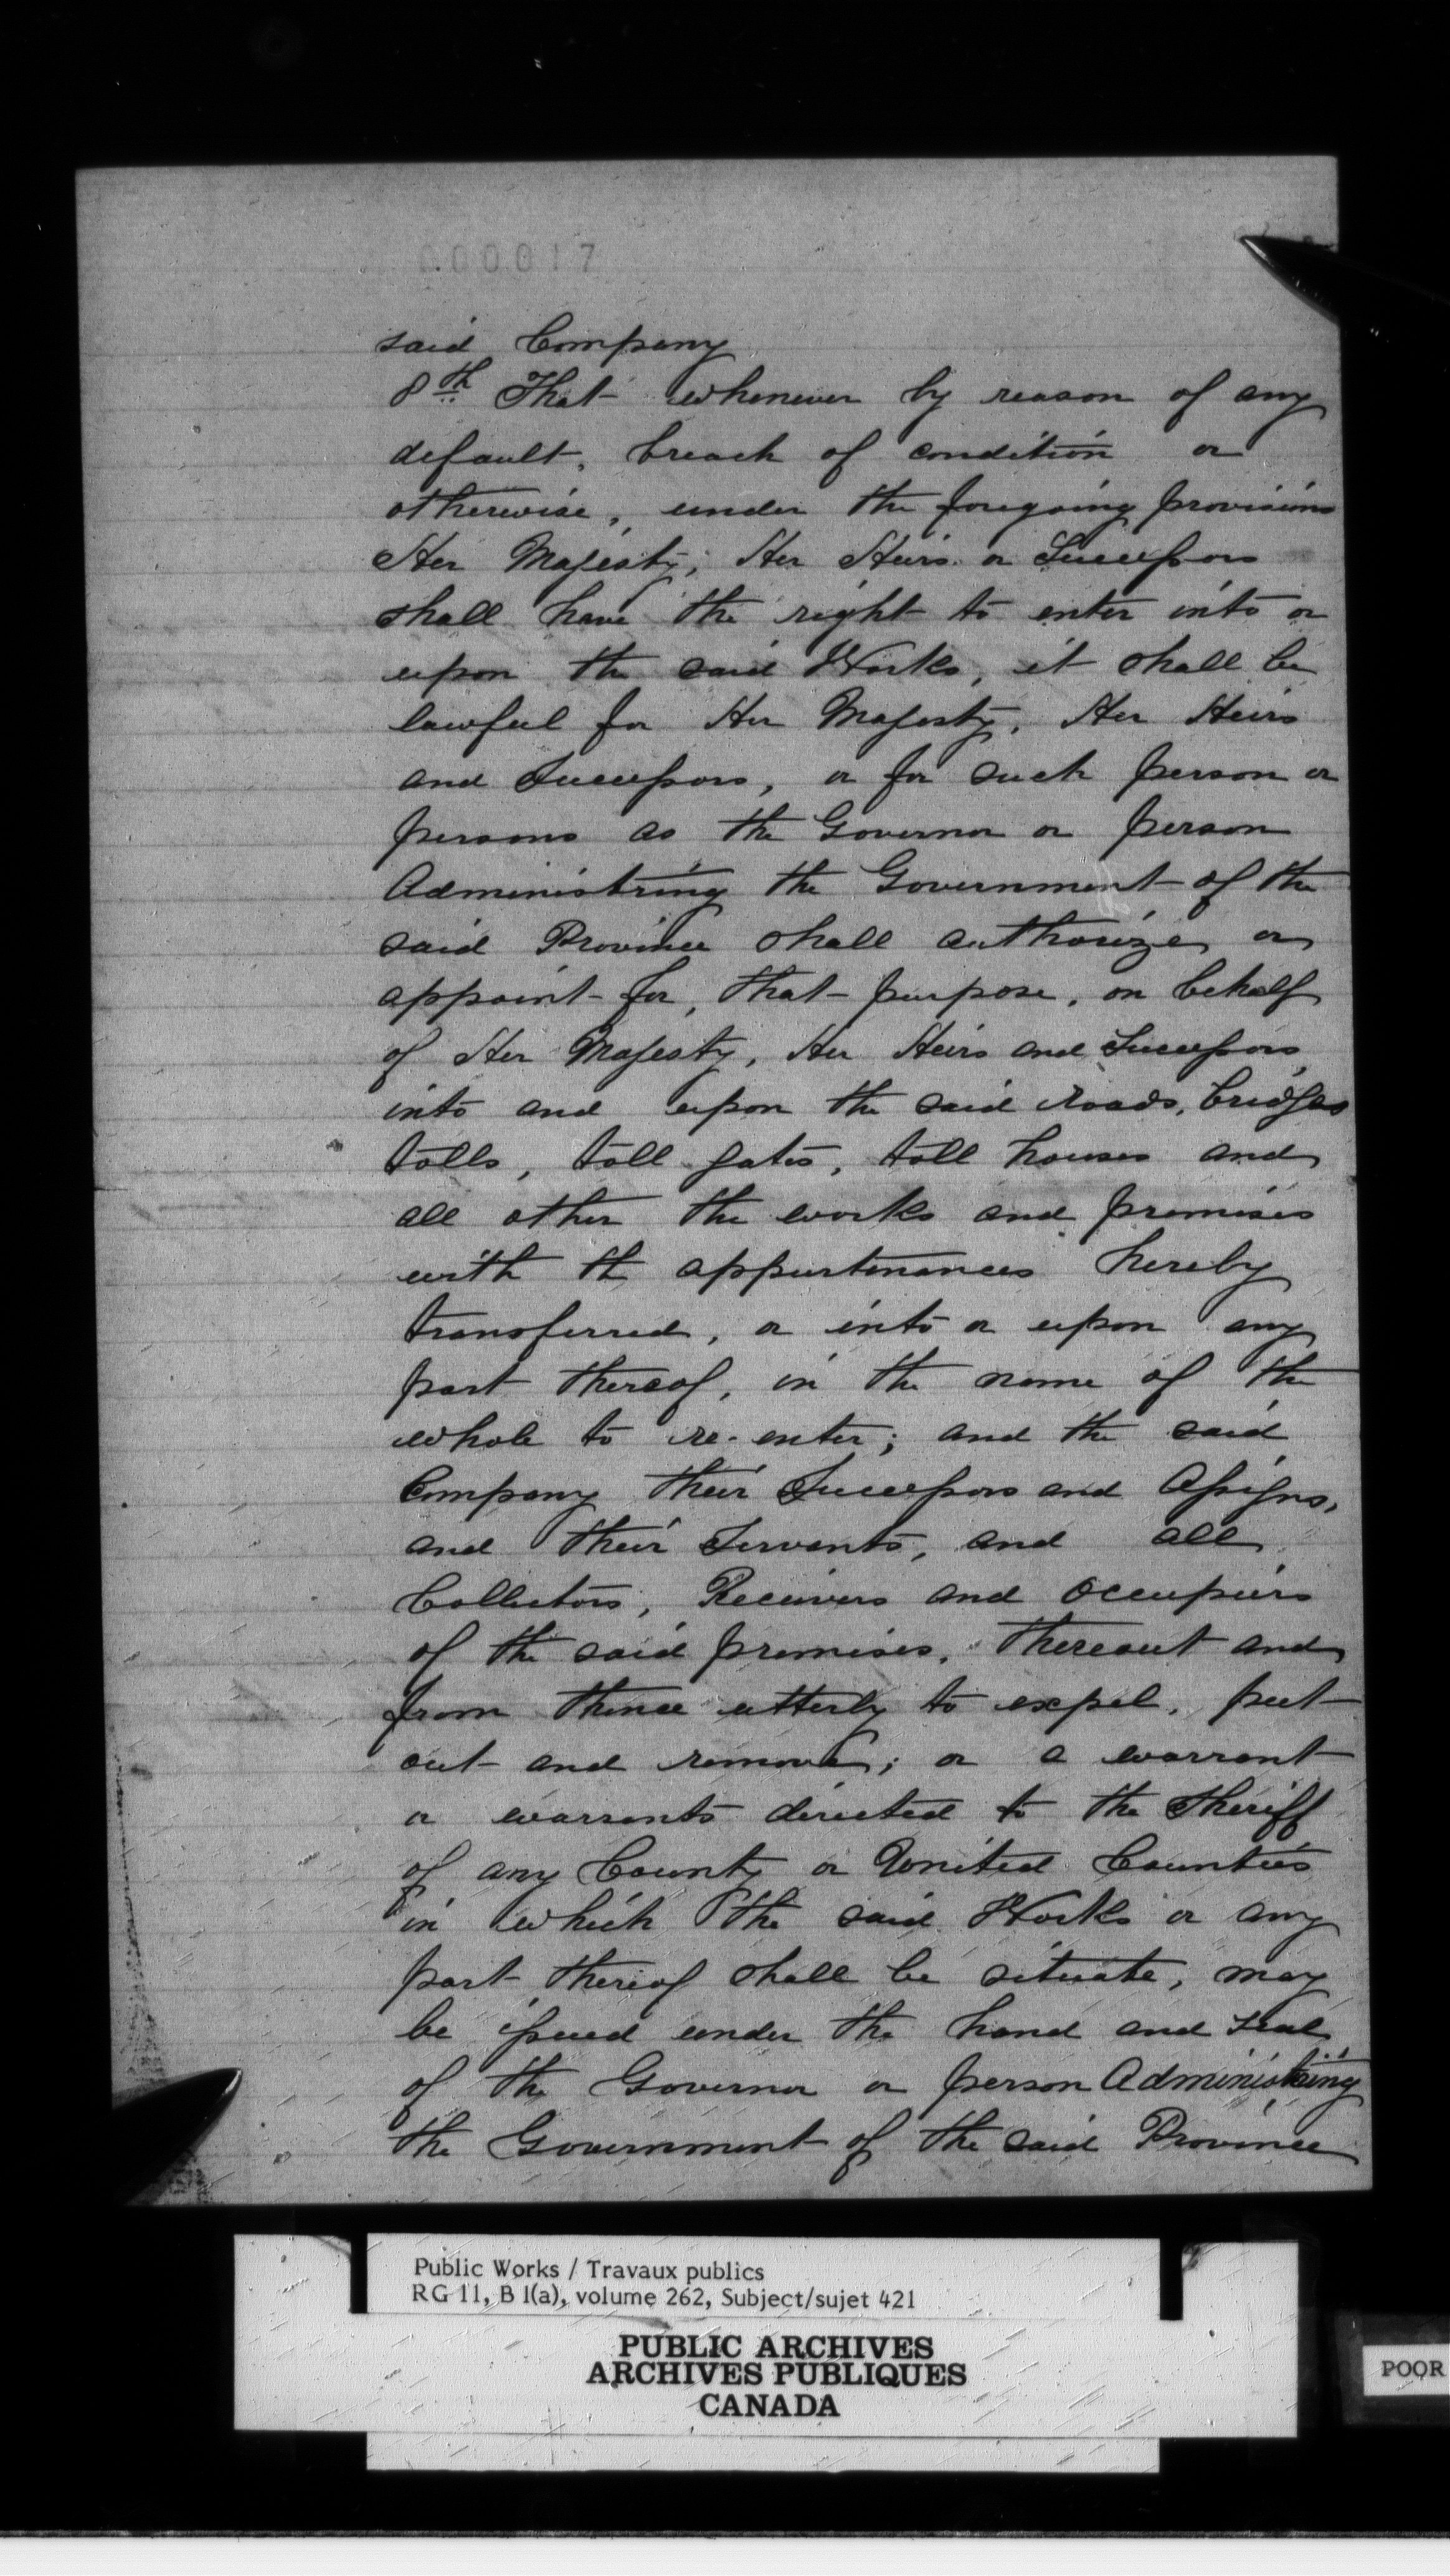 000017
said Company
8th That whenever by reason of any
default, breach of condition or
otherwise, under the foregoing provisions
Her Majesty, Her Heirs or Successors
shall have the right to enter into or
upon the said Works, it shall be
lawful for Her Majesty, Her Heirs
and Successors, or for such person or
persons as the Governor or person
Administring the Government of the
said Province shall authorize or
appoint for, that purpose, on behalf
of Her Majesty, Her Heirs and Successors
into and upon the said roads, bridges
tolls, toll gates, toll houses and
all other the works and premises
with th appurtenances hereby
transferred, or into or upon any
part thereof, in the name of the
whole to re-enter; and the said
Company their Successors and Assigns,
and their Servants, and all
Collectors, Receivers and Occupiers
of the said premises, thereout and
from thence utterly to expel, put
out and remove; or a warrant
or warrants directed to the Sheriff
of any County or United Counties
in which the said Works or any
part thereof shall be situate, may
be issued under the hand and seal
of the Governor or person Administring
the Government of the said Province
Public Works / Travaux publics
RG 11, B 1(a), volume 262, Subject/sujet 421
PUBLIC ARCHIVES
ARCHIVES PUBLIQUES
CANADA
POOR